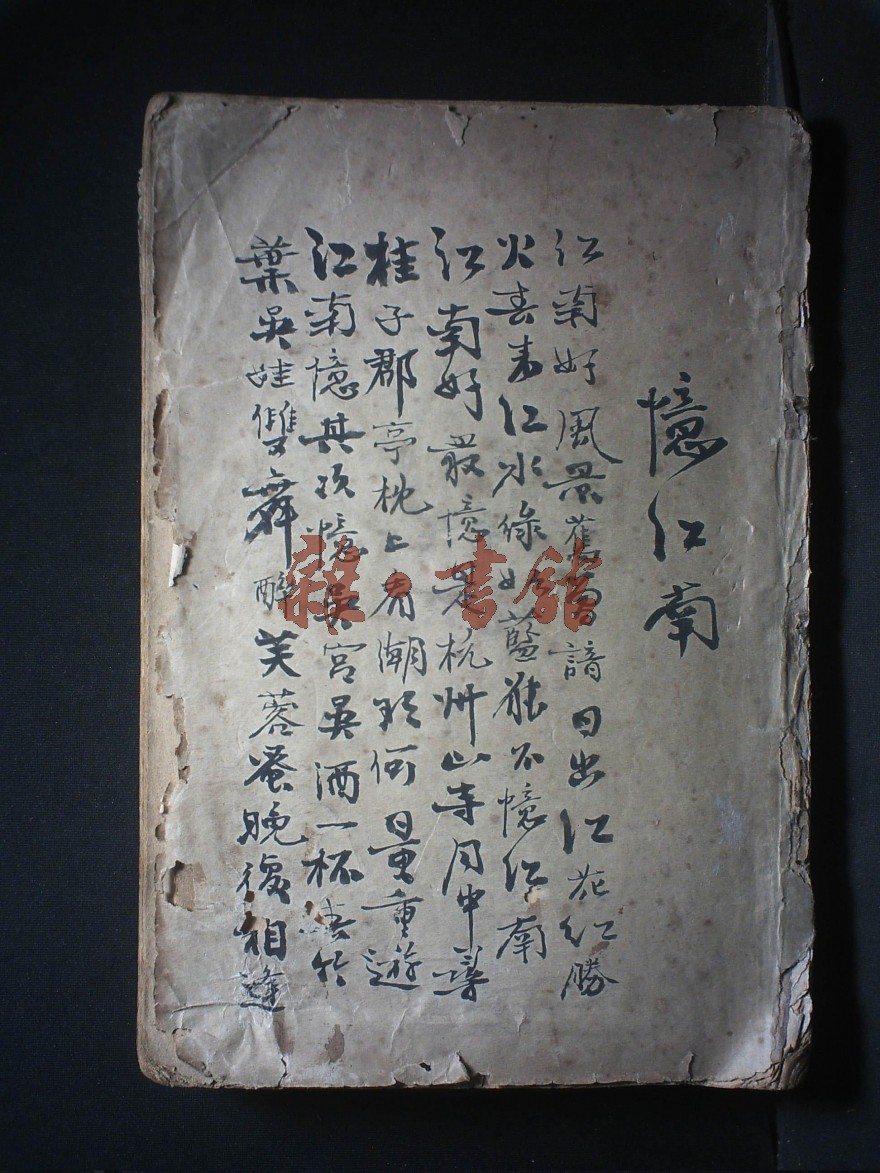 憶江南
江南好風景舊曾諳日出江花紅勝
火春來江水綠如藍能不憶江南
江南好最憶是杭州山寺月中尋
桂子郡亭枕上看潮頭何日更重遊
江南憶其次憶吳宮吳酒一杯春竹
葉吳娃雙舞醉芙蓉蚤晚復相逢
雜·書館